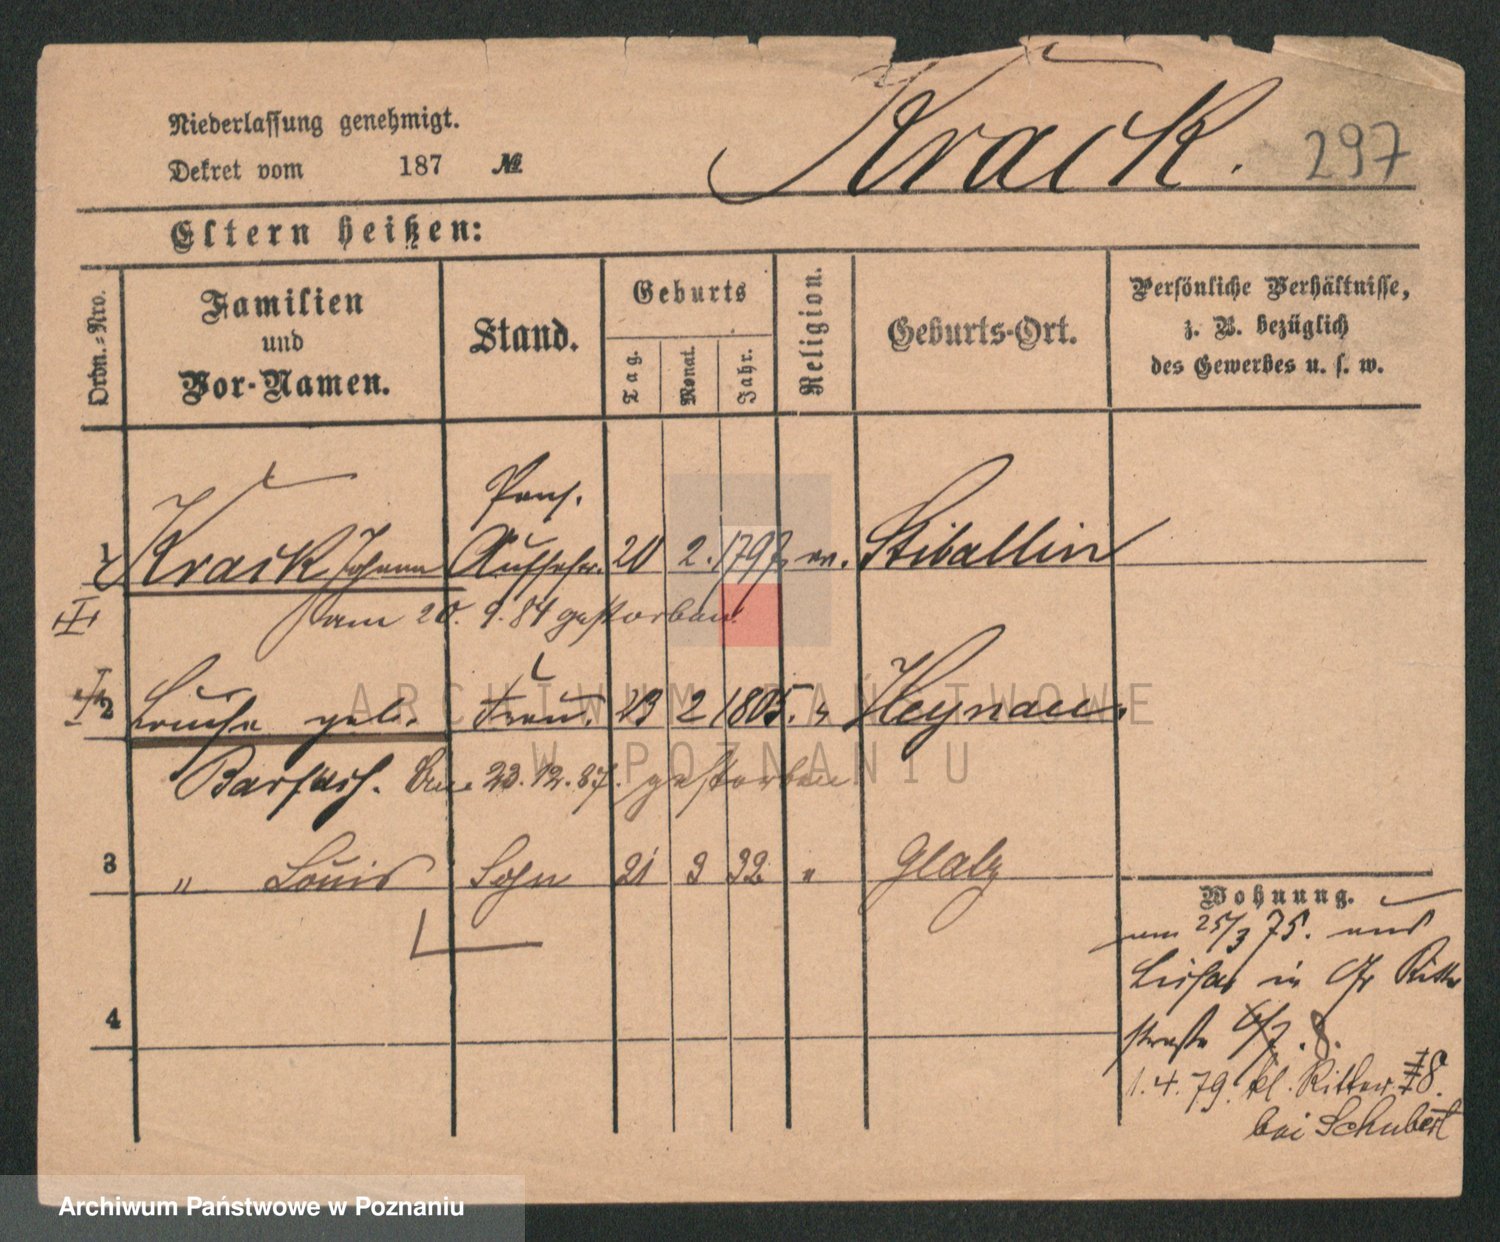 Niederlassung genehmigt.
Dekret vom 187 №
Krack. 297
Eltern heißen:
Ordn.-Nro.
Familien
und
Vor-Namen.
Stand.
Geburts
Tag.
Monat.
Jahr.
Religion.
Geburts-Ort.
Persönliche Verhältnisse,
z. B. bezüglich
des Gewerbes u. s. w.
Pens.
1 Krack Johann Aufseher. 20 2. 1797 ev. Stiballin
am 20. 9. 84 gestorben
2 Louise geb. Frau. 23 2 1805. " Heynau.
Barsch. 23. 12. 87. gestorben
3 " Louis Sohn 21 3 32 " Glatz
4
Wohnung.
25/3 75.
Lissa in Gr Ritter
straße 8.
1. 4. 79. kl. Ritter. 8.
bei Schubert
ARCHIWUM PAŃSTWOWE
W POZNANIU
Archiwum Państwowe w Poznaniu